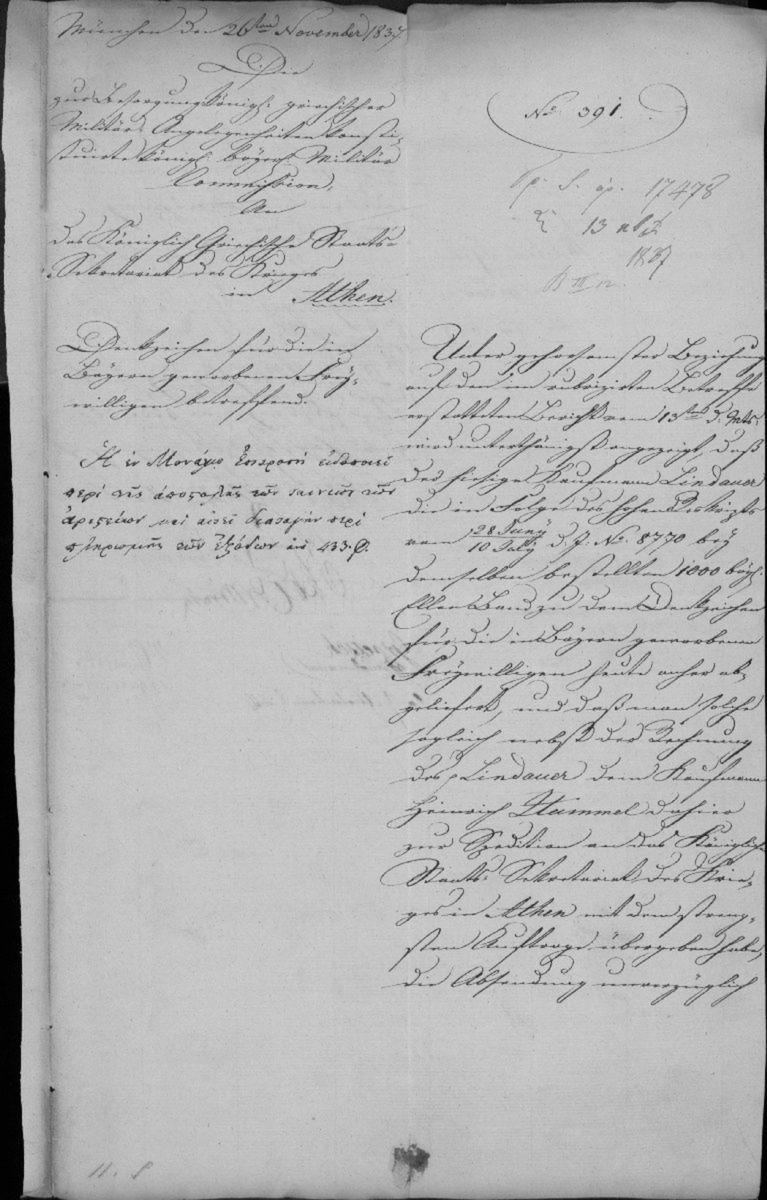 München den 26ten November 1837.
Die
zur Besorgung königl: griechischer
Militär Angelegenheiten consti-
tuirte königl: bayer: Militär
Commission,
An
das Königlich Griechische Staats-
Sekretariat des Krieges
in Athen.
Denkzeichen für die in
Bayern geworbenen Frey-
willigen betreffend.
Ἡ ἐν Μονάχῳ Ἐπιτροπὴ εἰδοποιεῖ
περὶ τῆς ἀποστολῆς τῶν ταινιῶν τῶν
ἀριστείων καὶ αἰτεῖ διαταγὴν περὶ
πληρωμῆς τῶν ἐξόδων ἐκ 433. Φ.
No 391.
17478
13
1837
B III 12
Unter gehorsamster Beziehung
auf den im rubrizirten Betreffe
erstatteten Bericht vom 13ten d. Mts.
wird unterthänigst angezeigt, daß
der hiesige Kaufmann Lindauer
die in Folge des hohen Reskripts
vom 28 Juny / 10 July d. J. No. 8770 bey
demselben bestellten 1000 bayr:
Ellen Band zu dem Denkzeichen
für die in Bayern geworbenen
Freywilligen heute anher ab-
geliefert, und daß man solche
sogleich nebst der Rechnung
des p Lindauer dem Kaufmann
Heinrich Hummel dahier
zur Spedition an das Königliche
Staats-Sekretariat des Krie-
ges in Athen mit dem streng-
sten Auftrage übergeben habe,
die Absendung unverzüglich